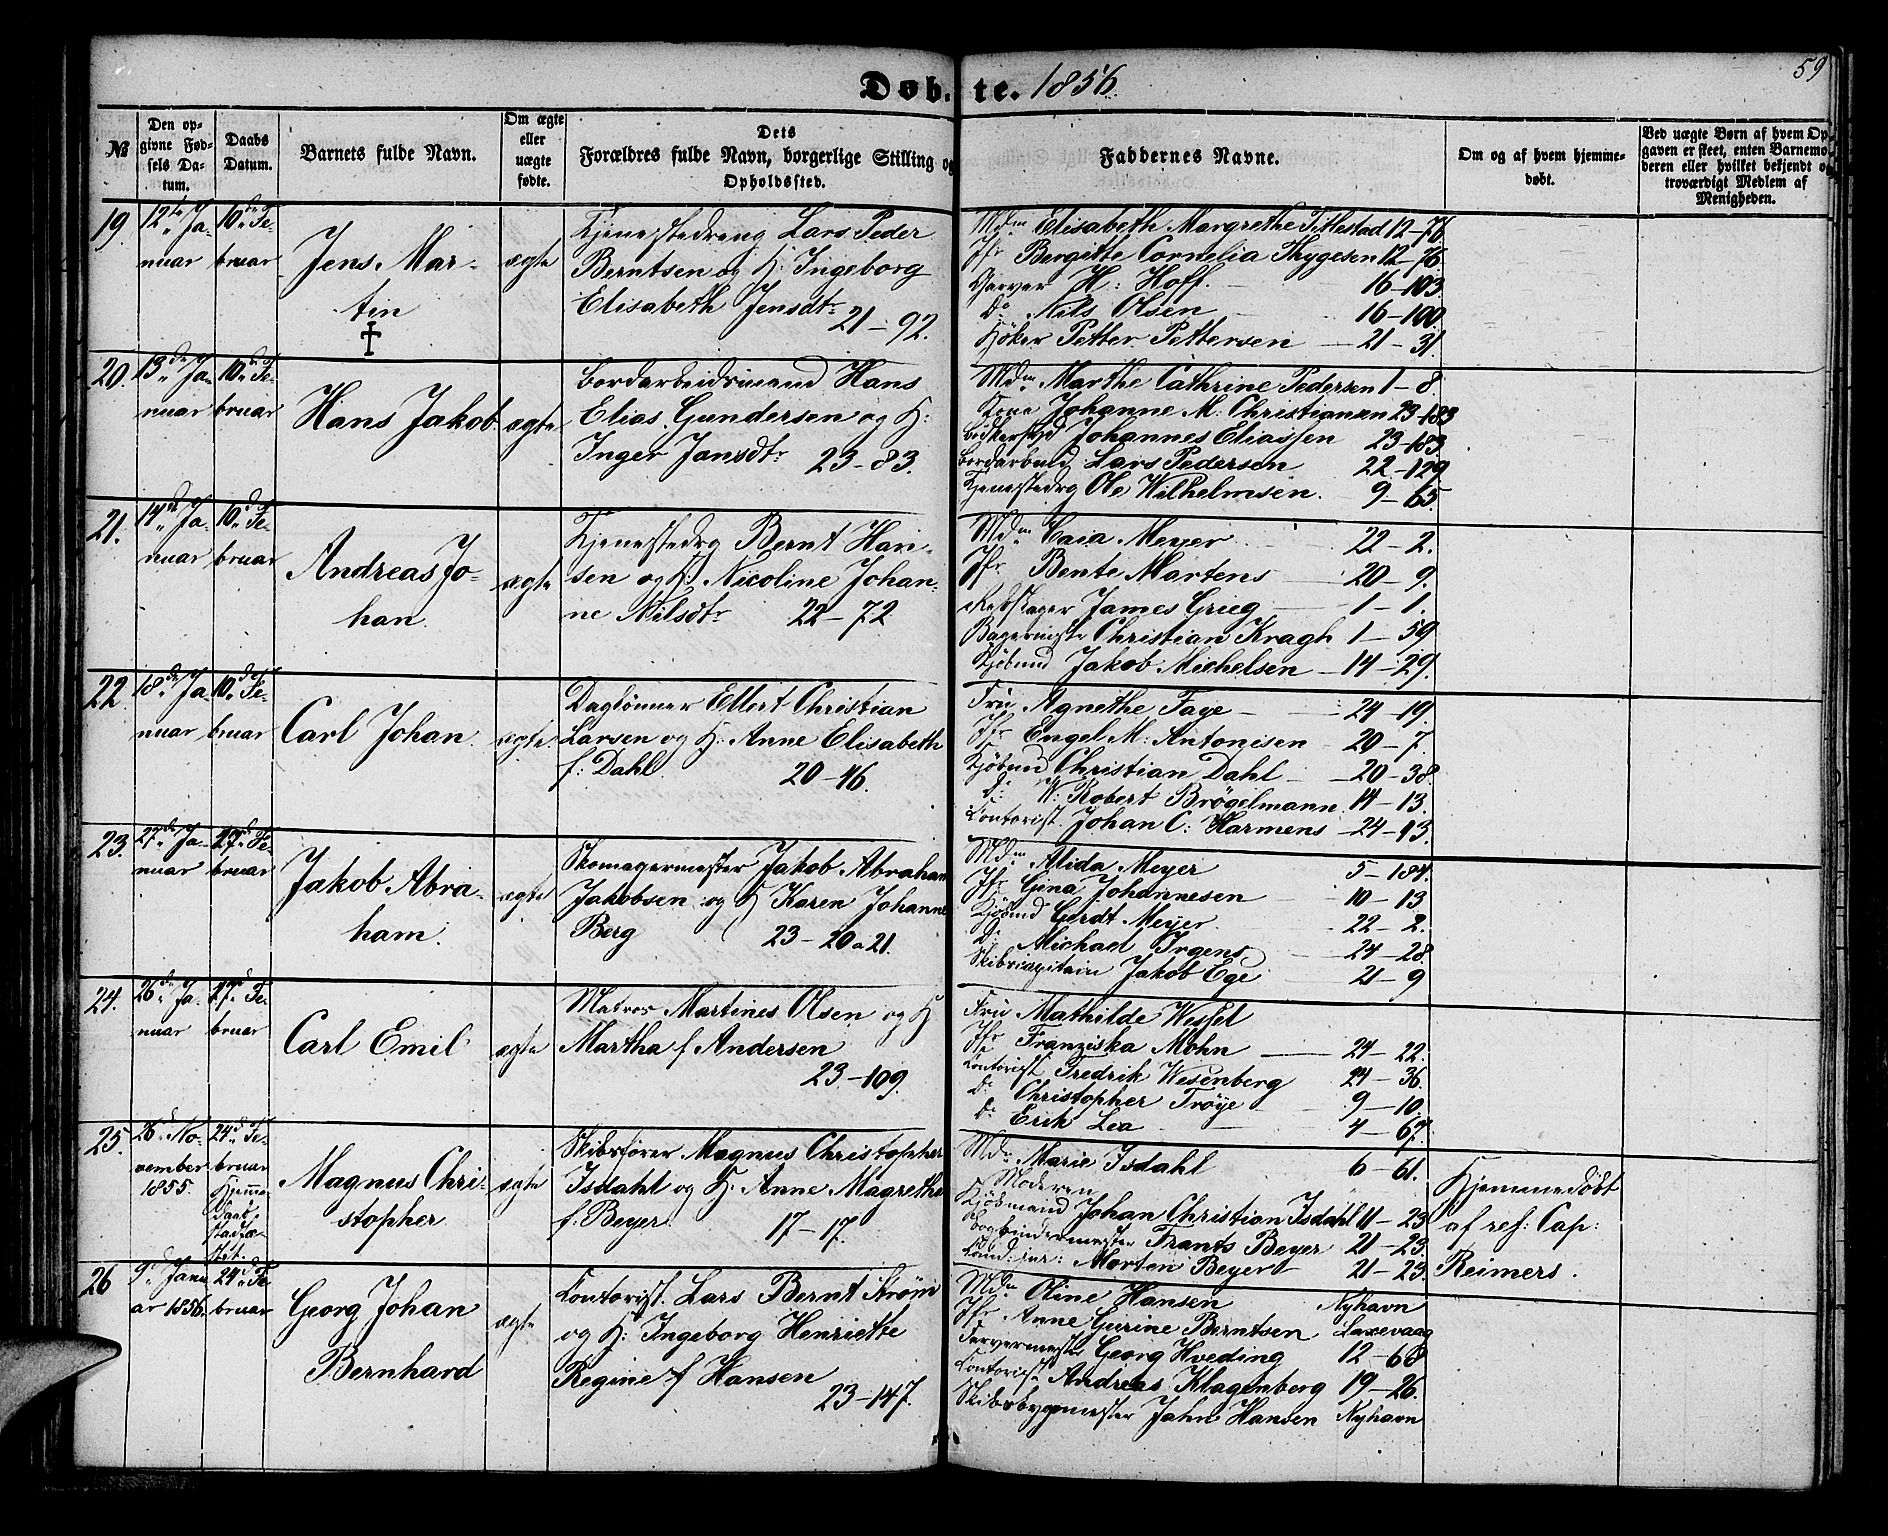 Døb-te. 1856
59
№
Den op-
givne Fød-
sels Da-
tum.
Daabs
Datum.
Barnets fulde Navn.
Om ægte
eller
uægte
fødte.
Dets
Forældres fulde Navn, borgerlige Stilling og
Opholdssted.
Faddernes Navne.
Om og af hvem hjemme-
døbt.
Ved uægte Børn af hvem Op-
gaven er skeet, enten Barnemo-
deren eller hvilket bekjendt og
troværdigt Medlem af
Menigheden.
19.
12te Ja-
nuar
10de Fe-
bruar
Jens Mar-
tin
†
ægte
Tjenestedreng Lars Peder
Berntsen og H: Ingeborg
Elisabeth Jensdtr 21-92.
Mdm Elisabeth Margrethe Tittestad 12-76
Jfr Bergitte Cornelia Thygesen 12-76
Garver H: Hoff. 16-103.
Do Nils Olsen 16-100
Høker Petter Pettersen 21-31.
20.
13de Ja-
nuar
10de Fe-
bruar
Hans Jakob
ægte
Bordarbeidsmand Hans
Elias Gundersen og H:
Inger Jansdtr 23-83.
Mdm Marthe Cathrine Pedersen 1-8
Kone Johanne M: Christiansen 23-183
Bødkersvd Johannes Eliassen 23-183
Bordarbeid Lars Pedersen 22-129
Tjenestedrg Ole Wilhelmsen. 9-65.
21.
14de Ja-
nuar
10de Fe-
bruar
Andreas Jo-
han.
ægte
Tjenestedrg Bernt Han-
sen og H: Nicoline Johan-
ne Nilsdtr 22-72
Mdm Caia Meyer 22-2.
Jfr Bente Martens 20-9.
Rebslager James Grieg 1-1.
Bagermester Christian Kragh 1-59
Kjøbmd Jakob Michelsen 14-29.
22
18de Ja-
nuar
10de Fe-
bruar
Carl Johan.
ægte
Daglønner Ellert Christian
Larsen og H: Anne Elisabeth
f: Dahl. 20-46.
Fru Agnethe Faye 24-19.
Jfr Engel M: Antonisen 20-7.
Kjøbmd Christian Dahl 20-38.
do W: Robert Brøgelmann 14-13.
Contorist Johan C: Harmens 24-93.
23.
27de Ja-
nuar
17de Fe-
bruar
Jakob Abra-
ham.
ægte
Skomagermester Jakob Abraham
Jakobsen og H Karen Johanne
Berg 23-20a21.
Mdm Alida Meyer 5-184.
Jfr Gina Johannesen 10-13
Kjøbmd Gerdt Meyer 22-2.
do Michael Irgens 24-28
Skibscapitain Jakob Ege 21-9
24.
26de Ja-
nuar
17de Fe-
bruar
Carl Emil
ægte
Matros Martines Olsen og H
Martha f Andersen
23-109.
Fru Mathilde Wessel
Jfr Franziska Mohn 24-22.
Contorist Fredrik Wesenberg 24-36.
do Christopher Trøye 9-10.
do Erik Lea 4-67.
25.
26de No-
vember
1855.
24de Fe-
bruar
Hjemme
daab
stadfæ-
stet.
Magnus Chri-
stopher
ægte
Skibsfører Magnus Christopher
Isdahl og H: Anne Magrethe
f: Beyer. 17-17.
Mdm Marie Isdahl 6-61.
Moderen
Kjøbmand Johan Christian Isdahl 11-23
Bogbindermester Frants Beyer 21-23.
Cand: jur: Morten Beyer 21-23.
Hjemmedøbt
af res: Cap:
Reimers.
26
9de Janu-
ar 1856.
24de Fe-
bruar
Georg Johan
Bernhard
ægte
Contorist. Lars Bernt Strøm
og H: Ingeborg Henriette
Regine f Hansen
23-147.
Mdm Oline Hansen Nyhavn
Jfr Anne Gurine Berntsen Laxevaag
Farvermester Georg Hveding 12-68
Contorist Andreas Klagenberg 19-26.
Skibsbygmester Jahn Hansen Nyhavn